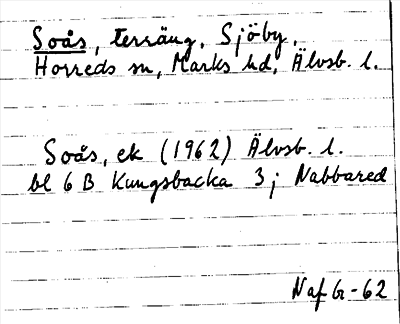 Soås, terräng, Sjöby,
Horreds sn, Marks hd, Älvsb. l.
Soås, ek (1962) Älvsb. l.
bl 6 B Kungsbacka 3 j Nabbared
NafG-62